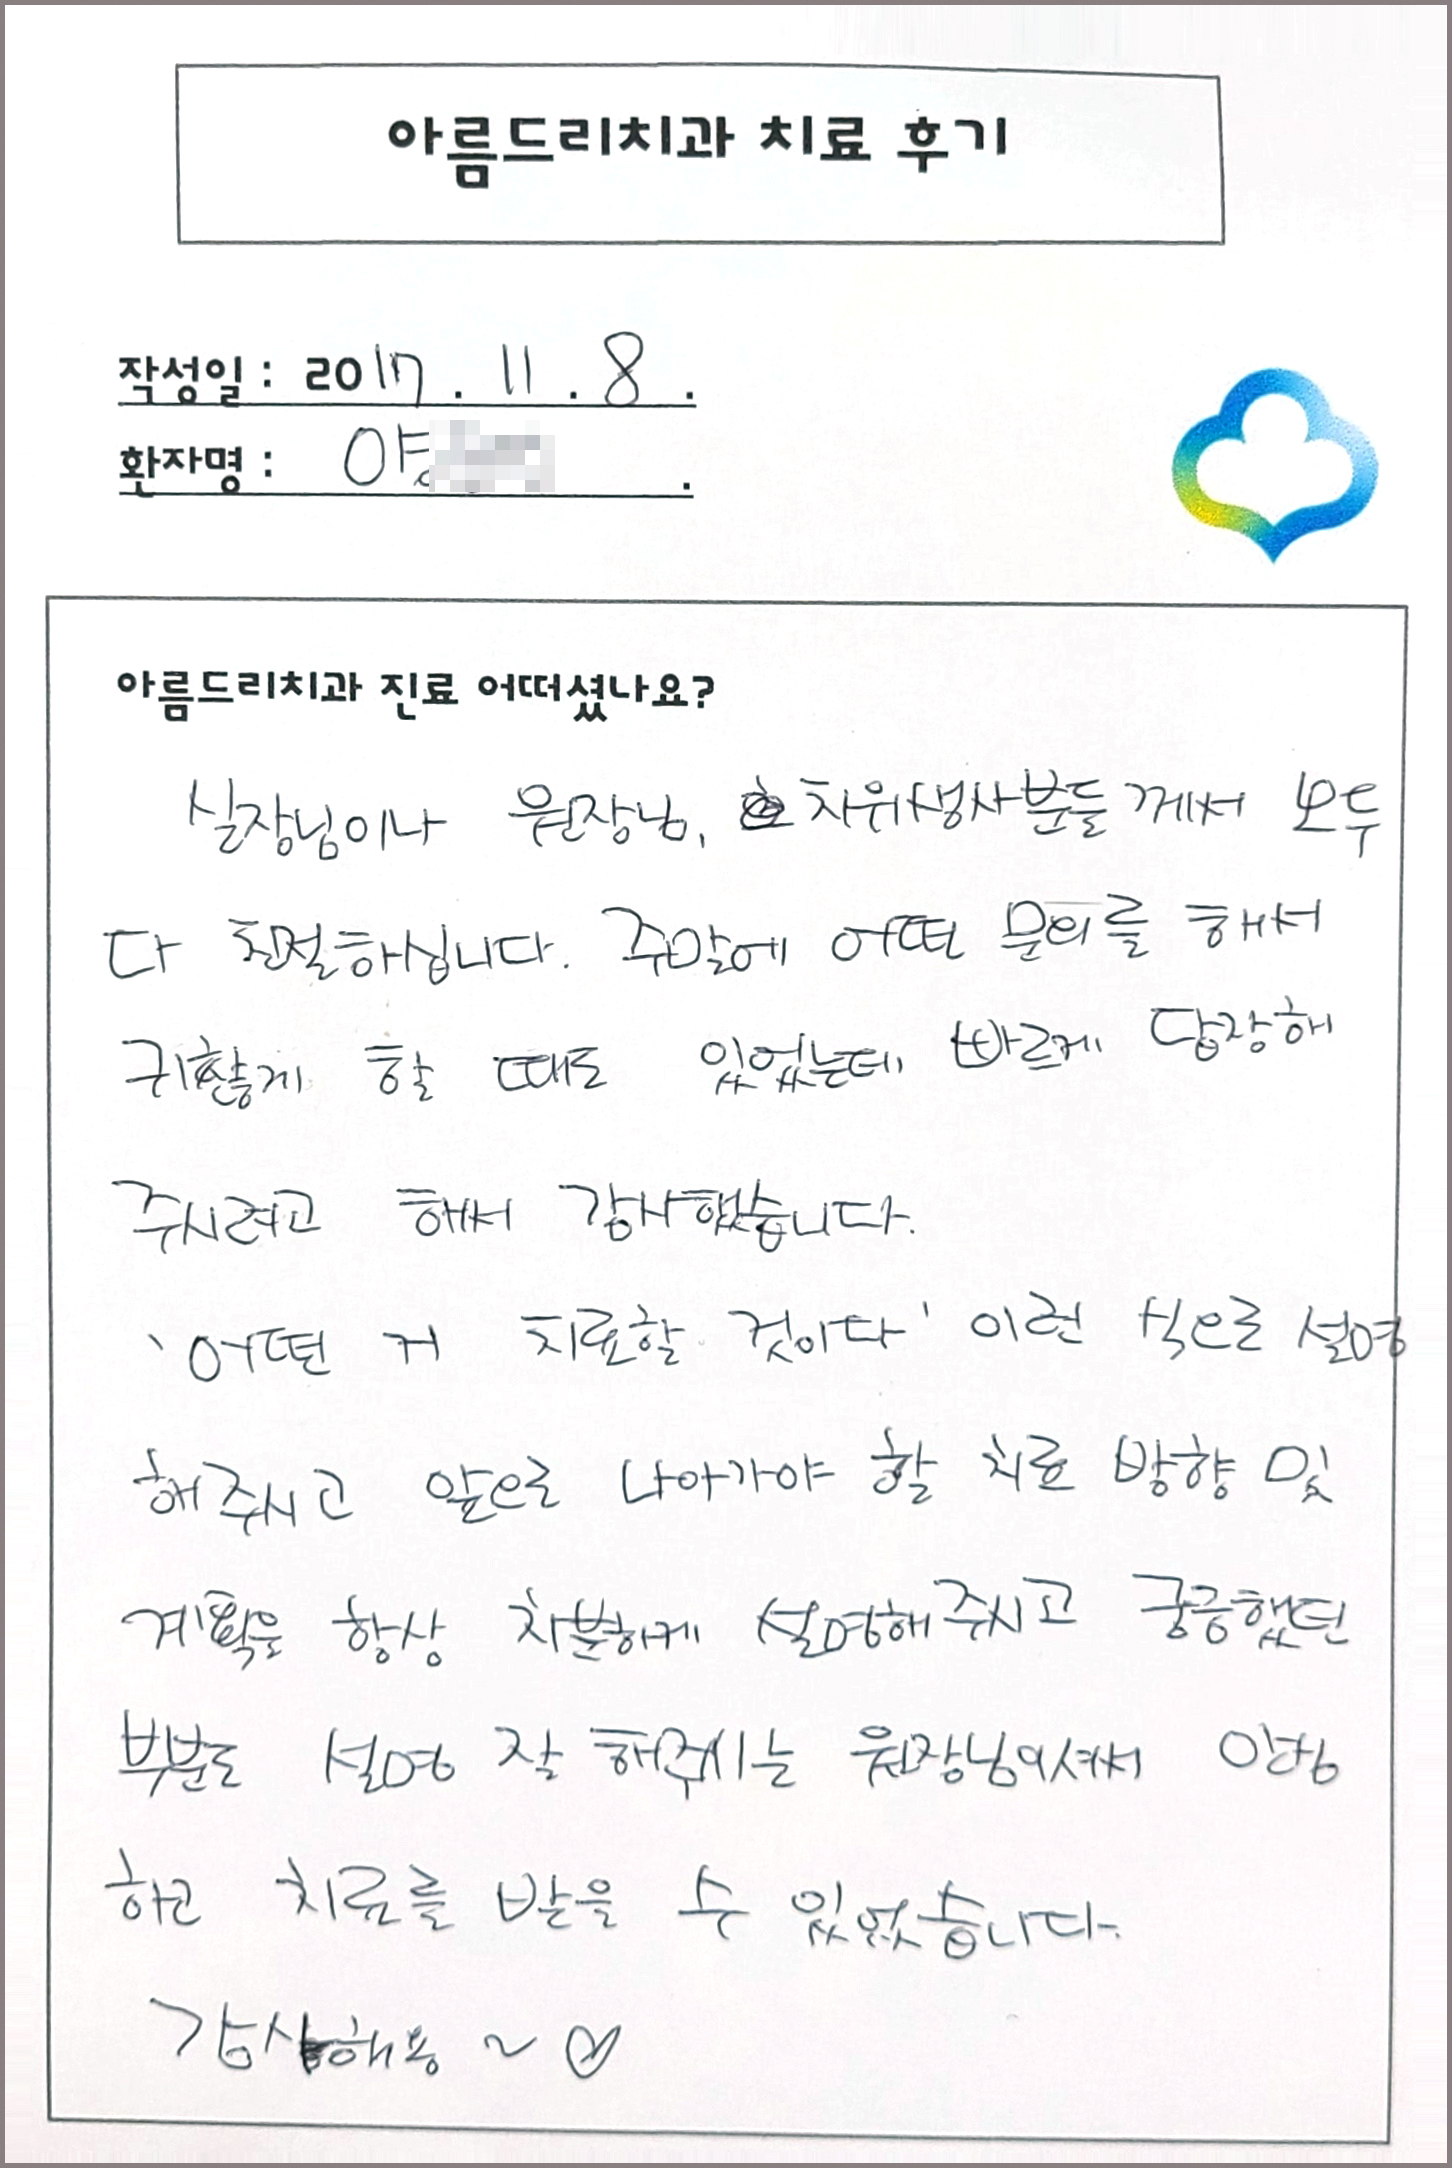 아름드리치과 치료 후기
작성일 : 2017 . 11 . 8 .
환자명 : 양 .
아름드리치과 진료 어떠셨나요?
실장님이나 원장님, 치위생사분들 께서 모두
다 친절하십니다. 주말에 어떤 문의를 해서
귀찮게 할 때도 있었는데 빠르게 답장해
주시려고 해서 감사했습니다.
'어떤 거 치료할 것이다' 이런 식으로 설명
해주시고 앞으로 나아가야 할 치료 방향 및
계획을 항상 차분하게 설명해주시고 궁금했던
부분도 설명 잘 해주시는 원장님이셔서 안심
하고 치료를 받을 수 있었습니다.
감사해용 ~ ♡